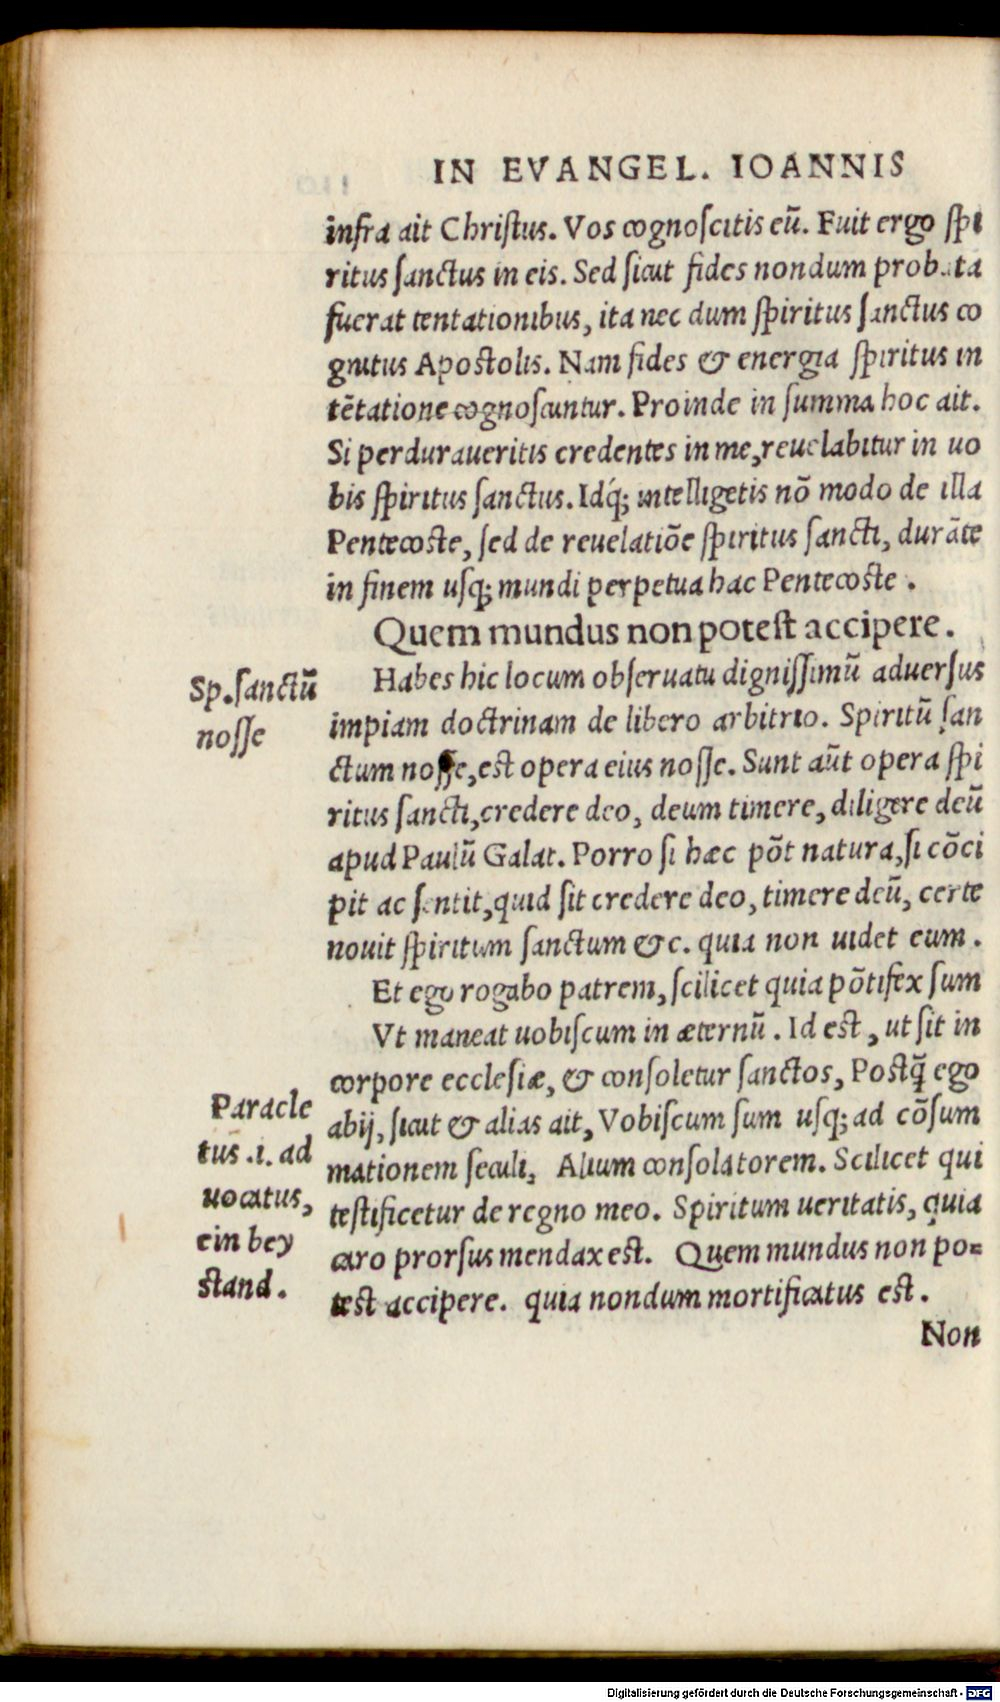 IN EVANGEL. IOANNIS
infra ait Christus. Vos cognoscitis eū. Fuit ergo spi
ritus sanctus in eis. Sed sicut fides nondum probata
fuerat tentationibus, ita nec dum spiritus sanctus co
gnitus Apostolis. Nam fides & energia spiritus in
tētatione cognoscuntur. Proinde in summa hoc ait.
Si perduraueritis credentes in me, reuelabitur in uo
bis spiritus sanctus. Idq́; intelligetis nō modo de illa
Pentecoste, sed de reuelatiōe spiritus sancti, durāte
in finem usq; mundi perpetua hac Pentecoste.
Quem mundus non potest accipere.
Sp. sanctū
nosse
Habes hic locum obseruatu dignissimū aduersus
impiam doctrinam de libero arbitrio. Spiritū san
ctum nosse, est opera eius nosse. Sunt aūt opera spi
ritus sancti, credere deo, deum timere, diligere deū
apud Paulū Galat. Porro si hæc pōt natura, si cōci
pit ac sentit, quid sit credere deo, timere deū, certe
nouit spiritum sanctum &c. quia non uidet eum.
Et ego rogabo patrem, scilicet quia pōtifex sum
Vt maneat uobiscum in æternū. Id est, ut sit in
corpore ecclesiæ, & consoletur sanctos, Postq̄ ego
abij, sicut & alias ait, Vobiscum sum usq; ad cōsum
mationem seculi, Alium consolatorem. Scilicet qui
testificetur de regno meo. Spiritum ueritatis, quia
caro prorsus mendax est. Quem mundus non po=
test accipere. quia nondum mortificatus est.
Paracle
tus .i. ad
uocatus,
ein bey
stand.
Non
Digitalisierung gefördert durch die Deutsche Forschungsgemeinschaft - DFG